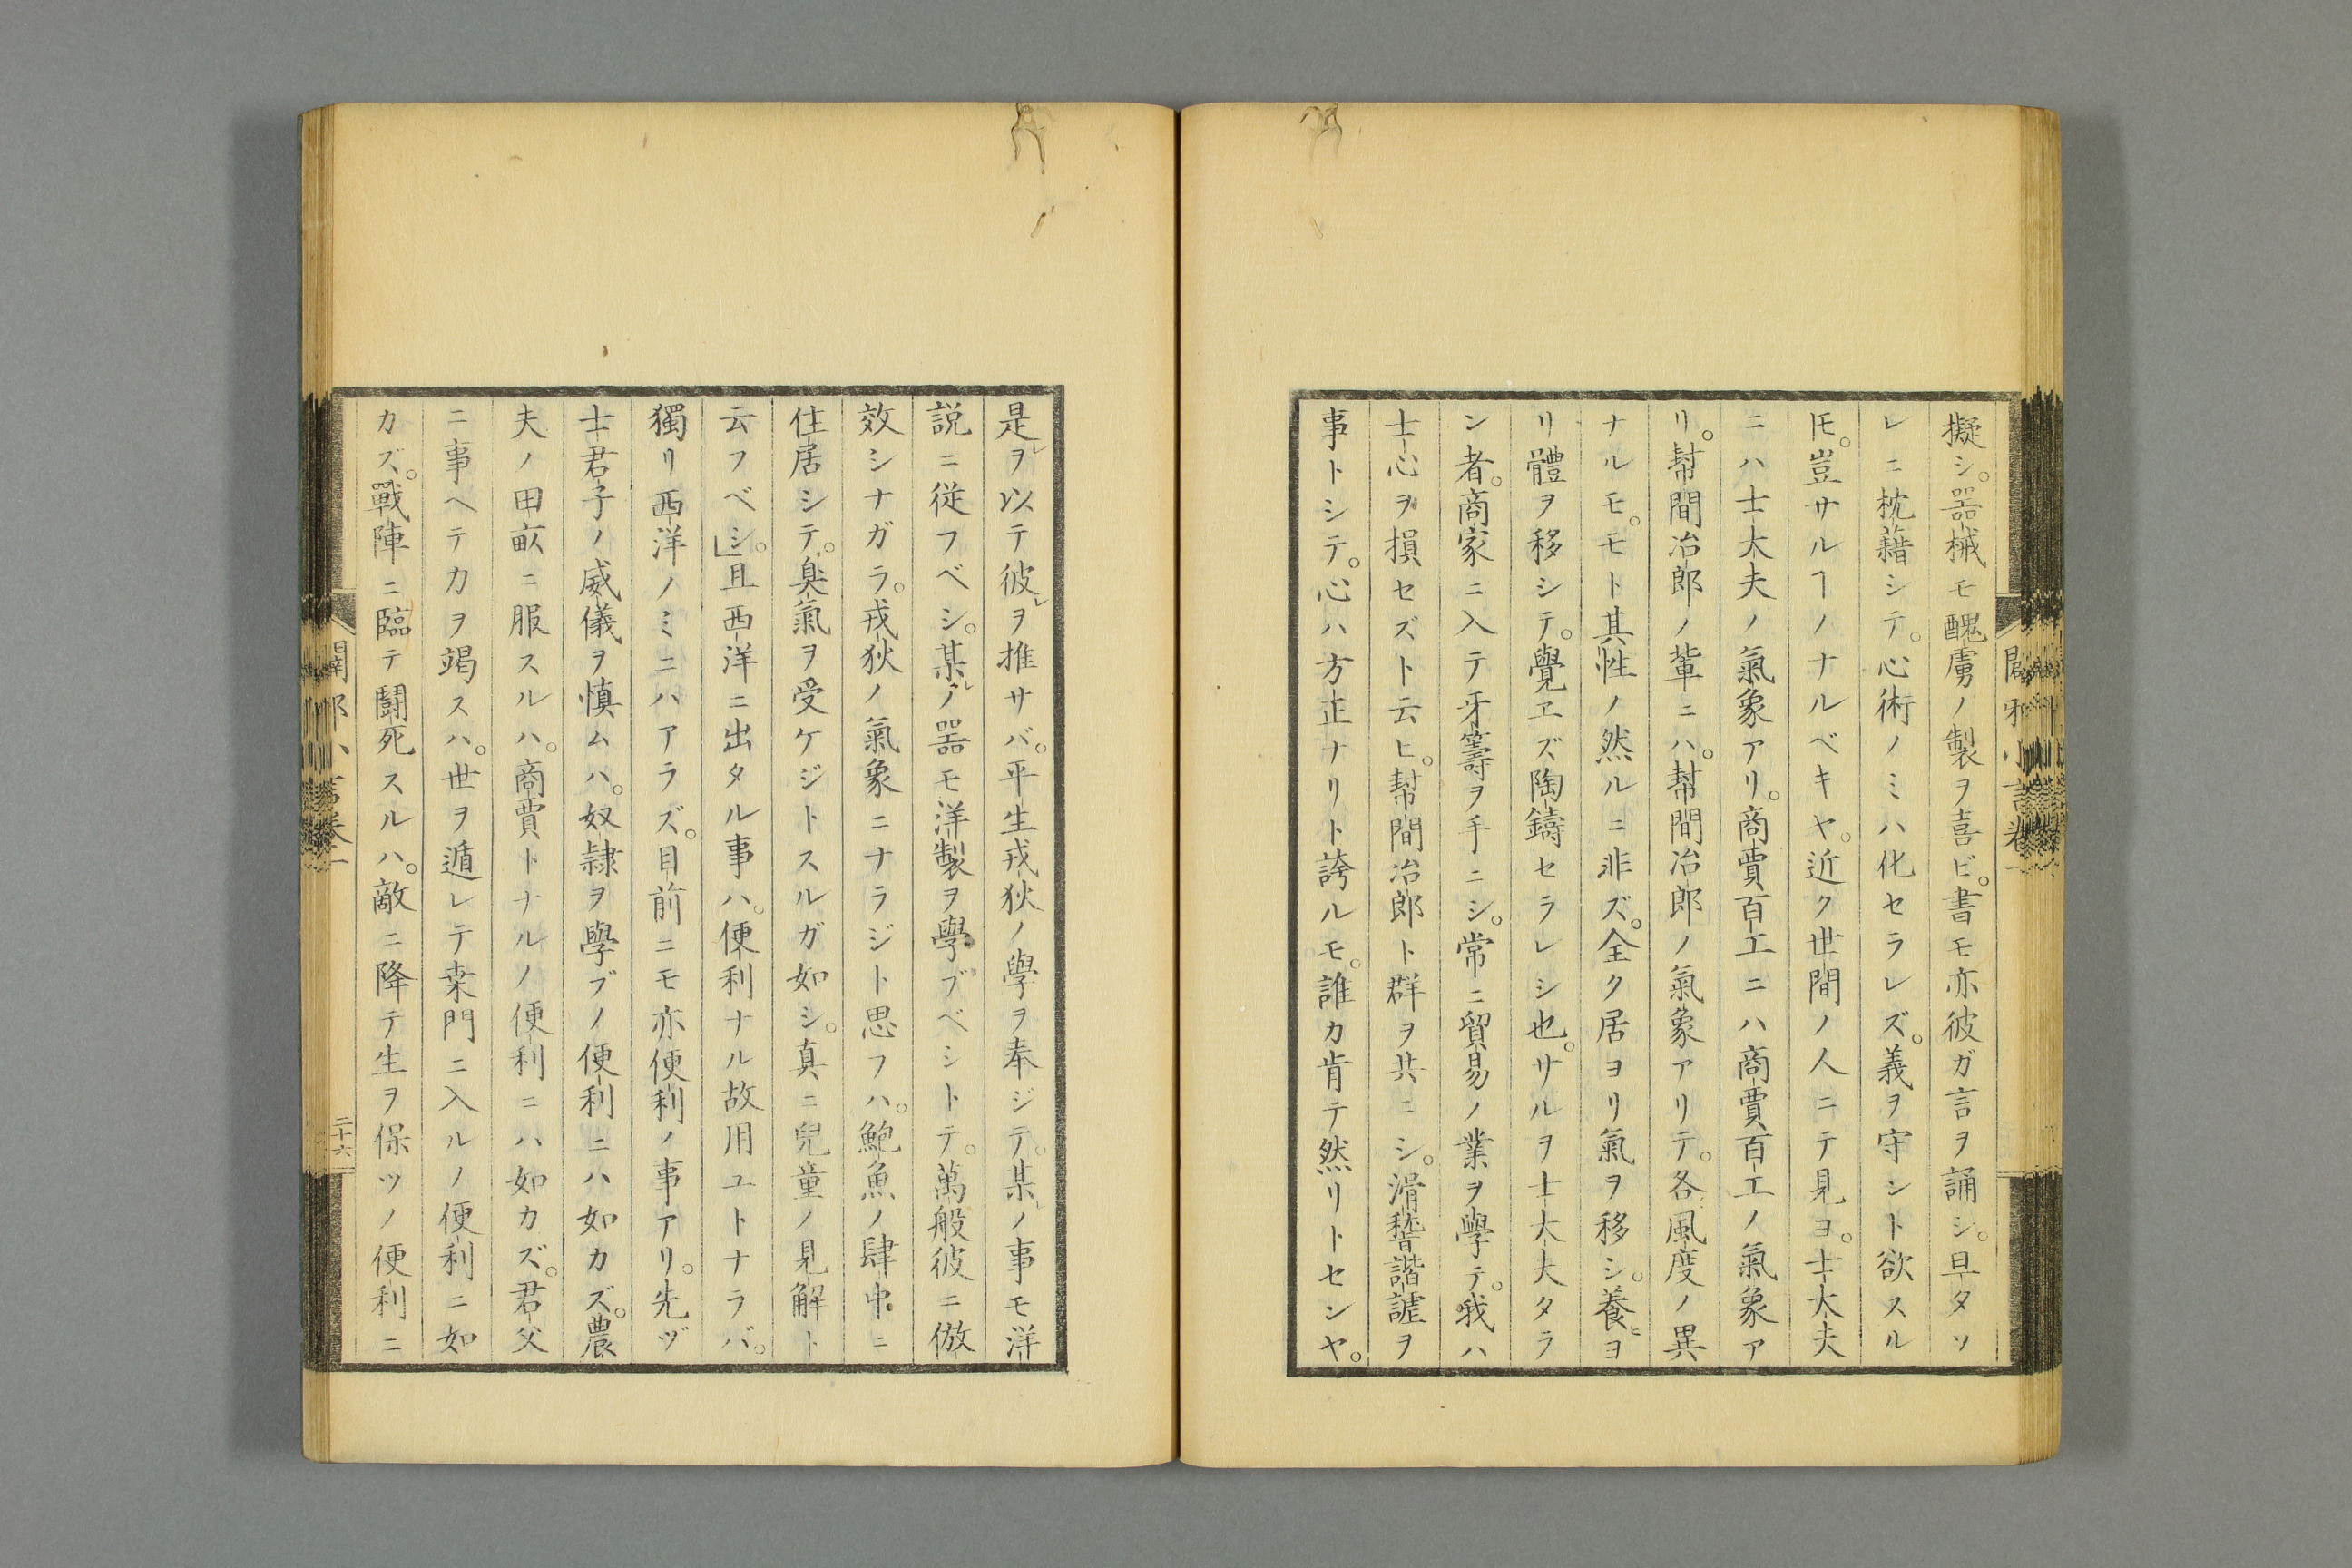 擬シ。器械モ醜虜ノ製ヲ喜ビ。書モ亦彼ガ言ヲ誦シ。旦タソ
レニ枕藉シテ。心術ノミハ化セラレズ。義ヲ守シト欲スル
𪜈。豈サルヿノナルベキヤ。近ク世間ノ人ニテ見ヨ。士大夫
ニハ士大夫ノ氣象アリ。商賈百工ニハ商賈百工ノ氣象ア
リ。幇間冶郎ノ輩ニハ。幇間冶郎ノ氣象アリテ。各風度ノ異
ナルモ。モト其性ノ然ルニ非ズ。全ク居ヨリ氣ヲ移シ。養ヒヨ
リ體ヲ移シテ。覺ヱズ陶鑄セラレシ也。サルヲ士大夫タラ
ン者。商家ニ入テ牙籌ヲ手ニシ。常ニ貿易ノ業ヲ學テ。我ハ
士心ヲ損セズト云ヒ。幇間冶郎ト群ヲ共ニシ。滑稽諧謔ヲ
事トシテ。心ハ方正ナリト誇ルモ。誰カ肯テ然リトセンヤ。
闢邪小言卷一
是レヲ以テ彼レヲ推サバ。平生戎狄ノ學ヲ奉ジテ。某レノ事モ洋
説ニ從フベシ。某レノ器モ洋製ヲ學ブベシトテ。萬般彼ニ倣
效シナガラ。戎狄ノ氣象ニナラジト思フハ。鮑魚ノ肆中ニ
住居シテ。臭氣ヲ受ケジトスルガ如シ。真ニ兒童ノ見解ト
云フベシ。」且西洋ニ出タル事ハ。便利ナル故用ユトナラバ。
獨リ西洋ノミニハアラズ。目前ニモ亦便利ノ事アリ。先ヅ
士君子ノ威儀ヲ慎ムハ。奴隷ヲ學ブノ便利ニハ如カズ。農
夫ノ田畝ニ服スルハ。商賈トナルノ便利ニハ如カズ。君父
ニ事ヘテ力ヲ竭スハ。世ヲ遁レテ桒門ニ入ルノ便利ニ如
カズ。戰陣ニ臨テ鬪死スルハ。敵ニ降テ生ヲ保ツノ便利ニ
闢邪小言卷一
二十六